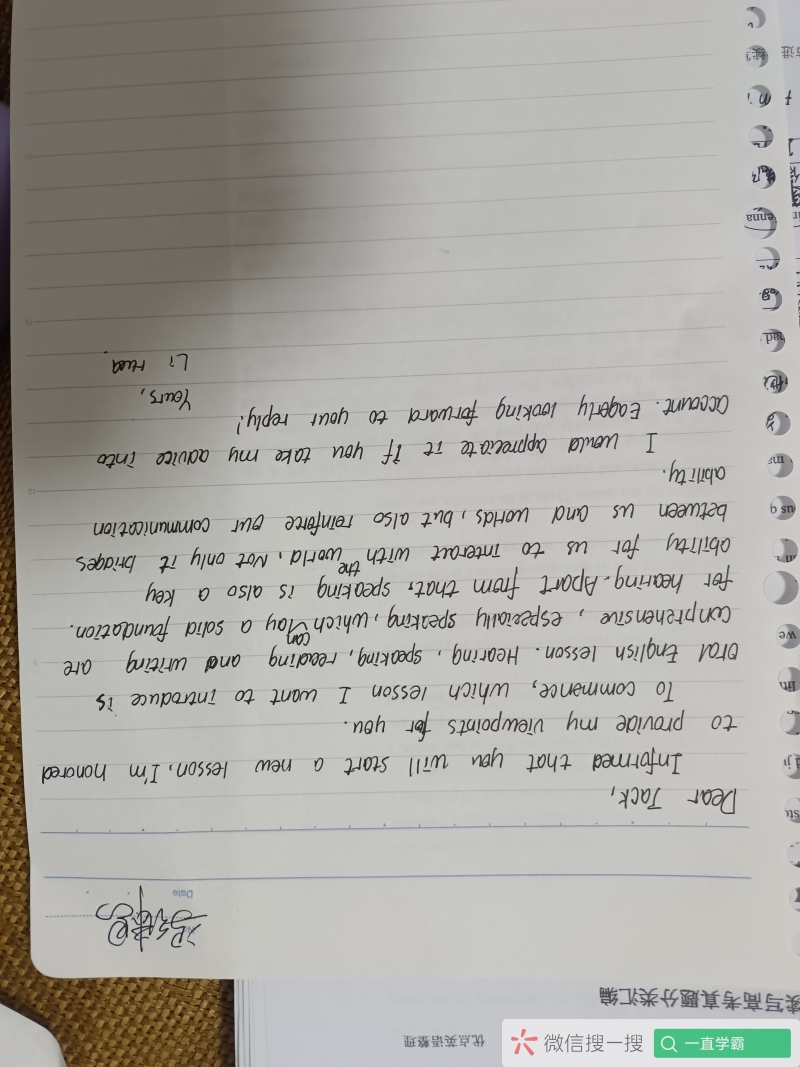 Dear Jack,
Informed that you will start a new lesson, I'm honored
to provide my viewpoints for you.
To commence, which lesson I want to introduce is
oral English lesson. Hearing, speaking, reading and writing are
comprehensive, especially speaking, which can lay a solid foundation.
for hearing. Apart from that, speaking is also a key
ability for us to interact with the world, Not only it bridges
between us and worlds, but also reinforce our communication
ability.
I would appreciate it if you take my advice into
account. Eagerly looking forward to your reply!
Yours,
Li Hua.
Date
续写高考真题分类汇编
优点英语整理
微信搜一搜
一直学霸